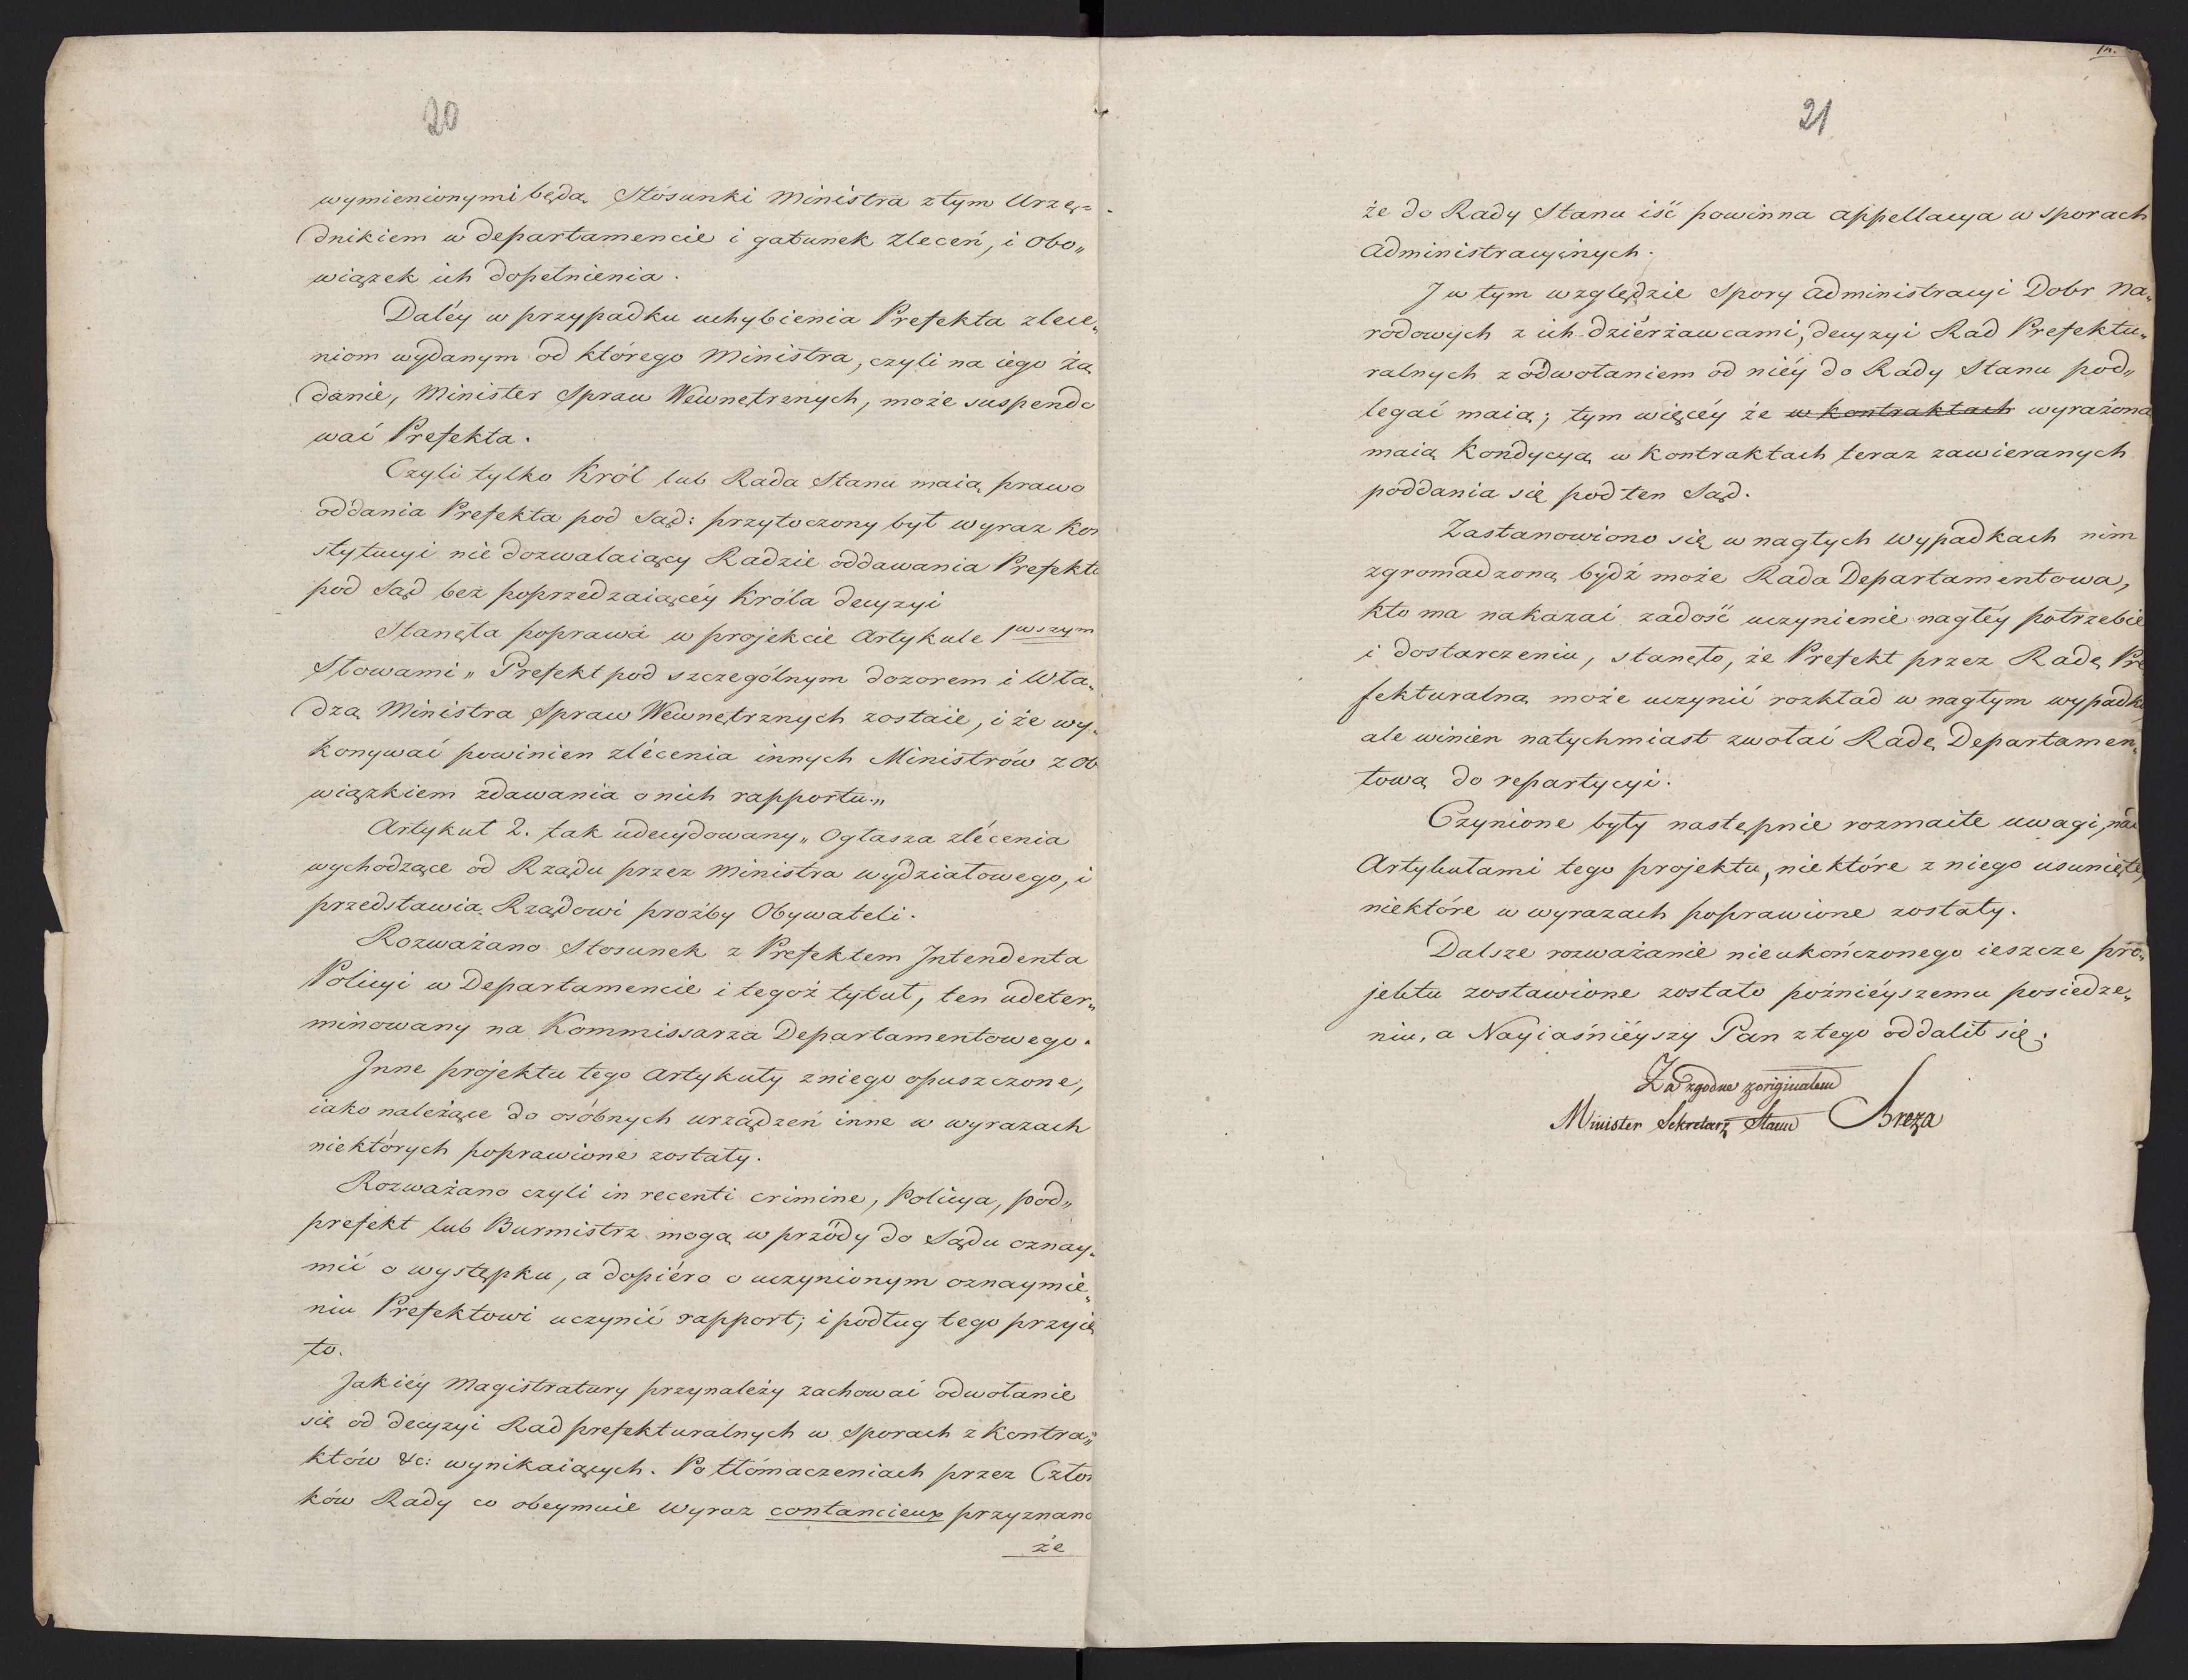 20
wymienionymi będą Stósunki Ministra z tym Urzę=
dnikiem w departamencie i gatunek zleceń, i Obo„
wiązek ich dopełnienia.
Daléy w przypadku uchybienia Prefekta zlece„
niom wydanym od którego Ministra, czyli na iego żą
danie, Minister Spraw Wewnętrznych, może suspendo
wać Prefekta.
Czyli tylko Król lub Rada Stanu maią prawo
oddania Prefekta pod Sąd: przytoczony był wyraz Kon
stytucyi nie dozwalaiący Radzie oddawania Prefekta
pod Sąd bez poprzedzaiącéy Króla decyzyi
Stanęła poprawa w projekcie Artykule 1wszym
Słowami „ Prefekt pod szczególnym dozorem i Wła„
dzą Ministra Spraw Wewnętrznych zostaie, i że wy„
konywać powinien zlécenia innych Ministrów z Ob
wiązkiem zdawania o nich rapportu.„
Artykuł 2. tak udecydowany „ Ogłasza zlécenia
wychodzące od Rządu przez Ministra wydziałowego, i
przedstawia Rządowi proźby Obywateli.
Rozważano Stosunek z Prefektem Intendenta
Policyi w Departamencie i tegoż tytuł, ten udeter„
minowany na Kommissarza Departamentowego.
Inne projektu tego Artykuły z niego opuszczone,
iako należące do osóbnych urządzeń inne w wyrazach
niektórych poprawione zostały.
Rozważano czyli in recenti crimine, Policya, pod„
prefekt lub Burmistrz mogą w przódy do Sądu oznay„
mić o występku, a dopiéro o uczynionym oznaymie„
niu Prefektowi uczynić rapport; i podług tego przyię
to.
Jakiéy Magistratury przynależy zachować odwołanie
się od decyzyi Rad prefekturalnych w Sporach z Kontra„
któw &c: wynikaiących. Po tłómaczeniach przez Człon
ków Rady co obeymuie wyraz contancieux przyznano
że
21
że do Rady Stanu iść powinna appellacya w sporach
Administracyinych.
I w tym względzie Spory Administracyi Dobr Na„
rodowych z ich dziérżawcami, decyzyi Rad Prefektu„
ralnych z odwołaniem od niéy do Rady Stanu pod„
legać maią; tym więcéy że w kontraktach wyrażoną
maią Kondycyą w Kontraktach teraz zawieranych
poddania się pod ten Sąd.
Zastanowiono się w nagłych wypadkach nim
zgromadzoną bydź może Rada Departamentowa,
kto ma nakazać zadość uczynienie nagłéy potrzebie
i dostarczeniu, stanęło, że Prefekt przez Radę Pre
fekturalną może uczynić rozkład w nagłym wypadku,
ale winien natychmiast zwołać Radę Departamen„
tową do repartycyi.
Czynione były następnie rozmaite uwagi, nad
Artykułami tego projektu, niektóre z niego usunięte,
niektóre w wyrazach poprawione zostały.
Dalsze rozważanie nieukończonego ieszcze pro„
jektu zostawione zostało poźniéyszemu posiedze„
niu, a Nayiaśniéyszy Pan z tego oddalił się.
Za zgodne z originalem
Minister Sekretarz Stanu Breza